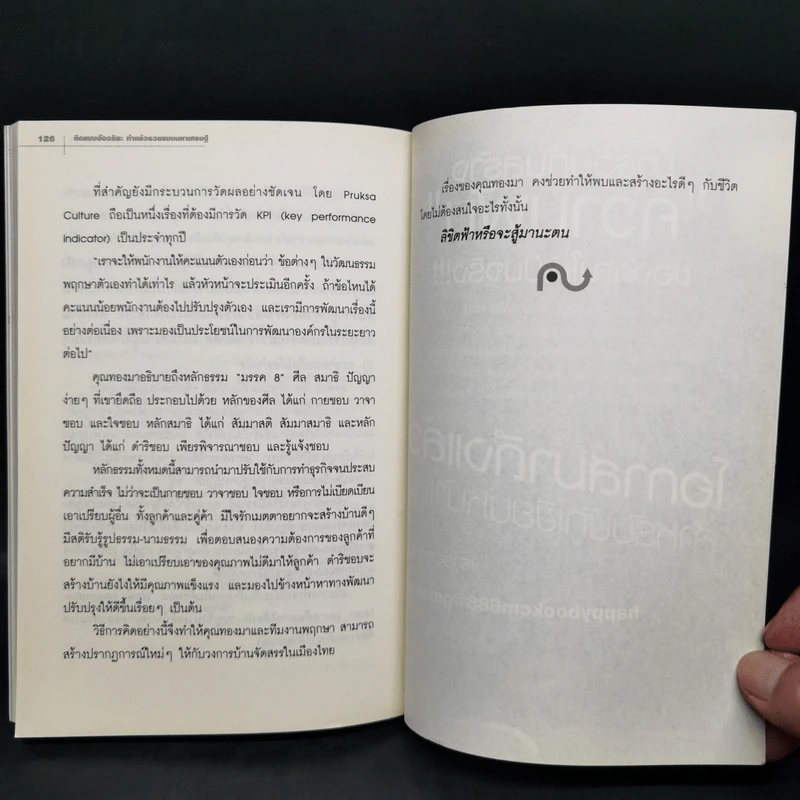 126 คิดแบบอัจฉริยะ ทำแล้วรวยแบบมหาเศรษฐี
ที่สำคัญยังมีกระบวนการวัดผลอย่างชัดเจน โดย Pruksa
Culture ถือเป็นหนึ่งเรื่องที่ต้องมีการวัด KPI (key performance
Indicator) เป็นประจำทุกปี
"เราจะให้พนักงานให้คะแนนตัวเองก่อนว่า ข้อต่างๆ ในวัฒนธรรม
พฤกษาตัวเองทำได้เท่าไร แล้วหัวหน้าจะประเมินอีกครั้ง ถ้าข้อไหนได้
คะแนนน้อยพนักงานต้องไปปรับปรุงตัวเอง และเรามีการพัฒนาเรื่องนี้
อย่างต่อเนื่อง เพราะมองเป็นประโยชน์ในการพัฒนาองค์กรในระยะยาว
ต่อไป"
คุณทองมาอธิบายถึงหลักธรรม "มรรค 8" ศีล สมาธิ ปัญญา
ง่ายๆ ที่เขายึดถือ ประกอบไปด้วย หลักของศีล ได้แก่ กายชอบ วาจา
ชอบ และใจชอบ หลักสมาธิ ได้แก่ สัมมาสติ สัมมาสมาธิ และหลัก
ปัญญา ได้แก่ ดำริชอบ เพียรพิจารณาชอบ และรู้แจ้งชอบ
หลักธรรมทั้งหมดนี้สามารถนำมาปรับใช้กับการทำธุรกิจจนประสบ
ความสำเร็จ ไม่ว่าจะเป็นกายชอบ วาจาชอบ ใจชอบ หรือการไม่เบียดเบียน
เอาเปรียบผู้อื่น ทั้งลูกค้าและคู่ค้า มีใจรักเมตตาอยากจะสร้างบ้านดีๆ
มีสติรับรู้รูปธรรม-นามธรรม เพื่อตอบสนองความต้องการของลูกค้าที่
อยากมีบ้าน ไม่เอาเปรียบเอาของคุณภาพไม่ดีมาให้ลูกค้า ดำริชอบจะ
สร้างบ้านยังไงให้มีคุณภาพแข็งแรง และมองไปข้างหน้าหาทางพัฒนา
ปรับปรุงให้ดีขึ้นเรื่อยๆ เป็นต้น
วิธีการคิดอย่างนี้จึงทำให้คุณทองมาและทีมงานพฤกษา สามารถ
สร้างปรากฏการณ์ใหม่ๆ ให้กับวงการบ้านจัดสรรในเมืองไทย
เรื่องของคุณทองมา คงช่วยทำให้พบและสร้างอะไรดีๆ กับชีวิต
โดยไม่ต้องสนใจอะไรทั้งนั้น
ลิขิตฟ้าหรือจะสู้มานะตน